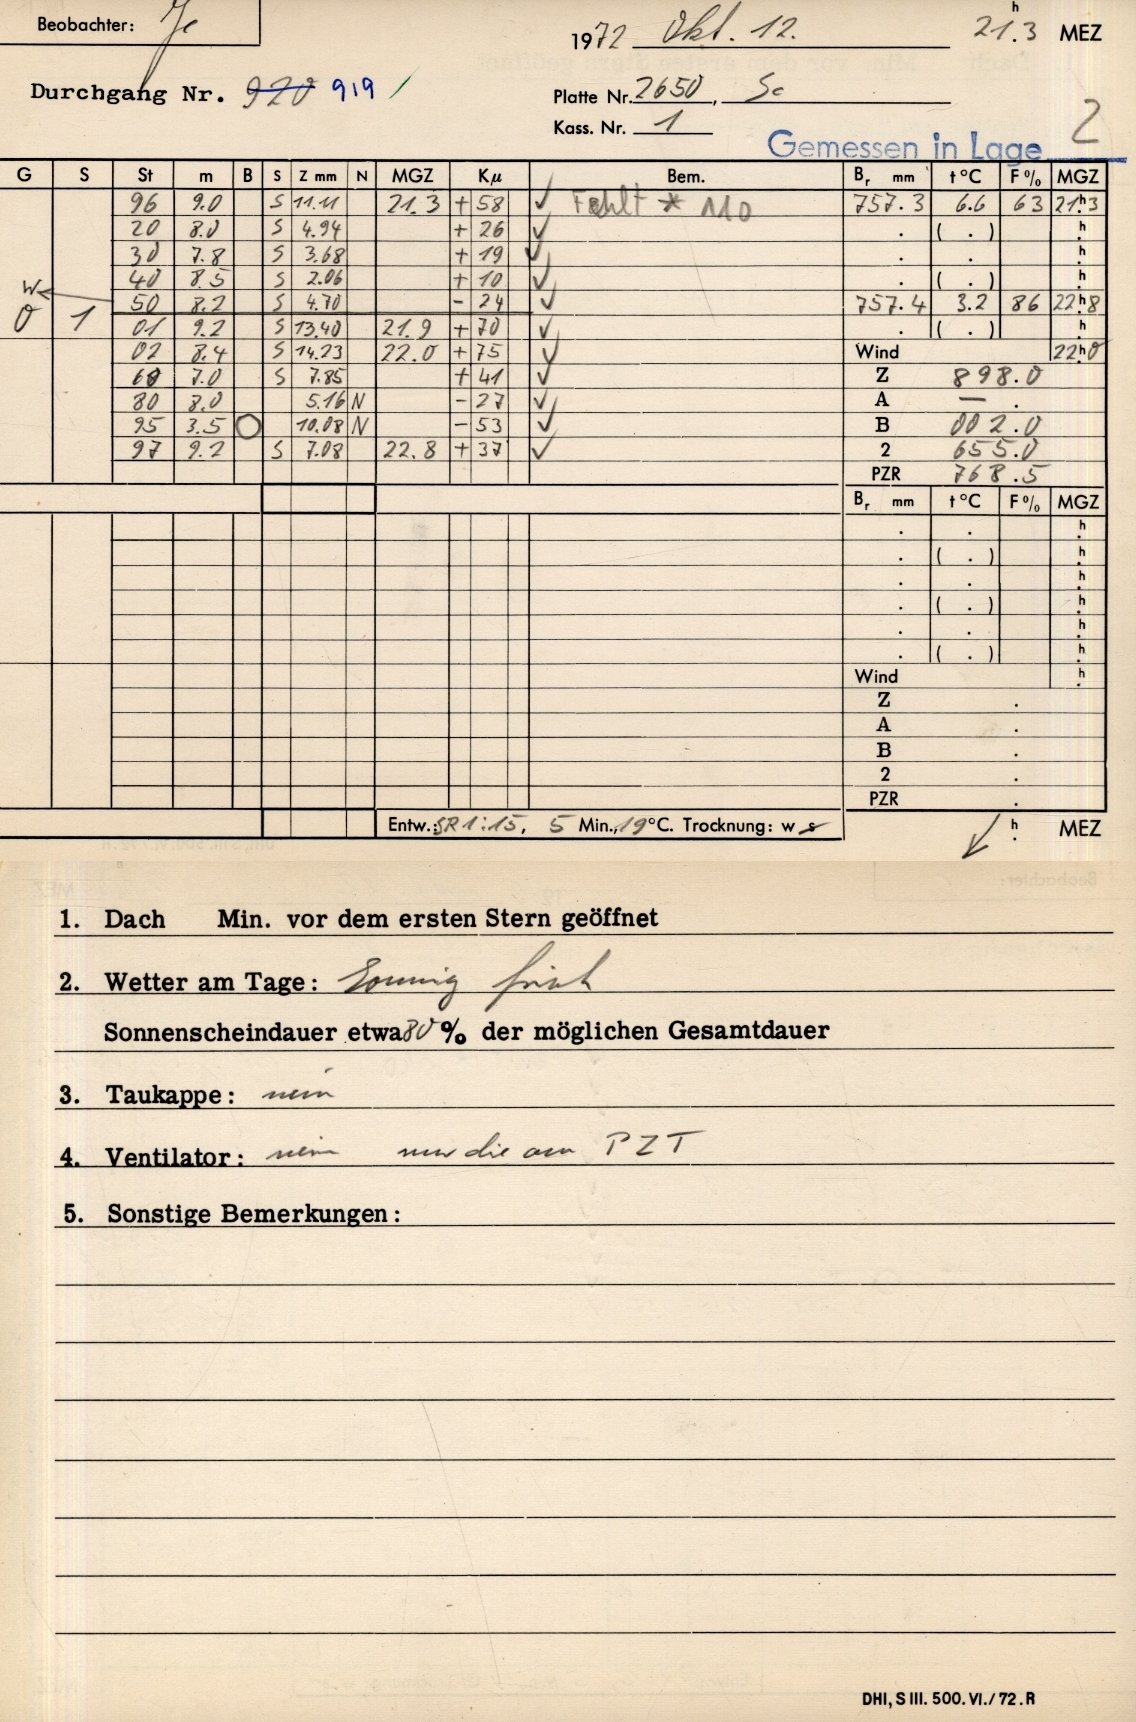 Beobachter: Je
1972 Okt. 12. 21h.3 MEZ
Durchgang Nr. 920 919
Platte Nr. 2650, Sc
Kass. Nr. 1
Gemessen in Lage 2
G S St m B S Z mm N MGZ Kµ Bem. Br mm t °C F % MGZ
96 9.0 S 11.11 21.3 + 58 ✓ Fehlt * 110 757.3 6.6 63 21h3
20 8.0 S 4.94 + 26 ✓ . ( . ) h
30 7.8 S 3.68 + 19 ✓ . . h
40 8.5 S 2.06 + 10 ✓ . ( . ) h
W
O 1 50 8.2 S 4.70 - 24 ✓ 757.4 3.2 86 22h8
01 9.2 S 13.40 21.9 + 70 ✓ . ( . ) h
02 8.4 S 14.23 22.0 + 75 ✓ Wind 22h0
60 7.0 S 7.85 + 41 ✓ Z 898.0
80 8.0 5.16 N - 27 ✓ A — .
95 3.5 O 10.08 N - 53 ✓ B 002.0
97 9.2 S 7.08 22.8 + 37 ✓ 2 655.0
PZR 768.5
Br mm t °C F % MGZ
. . h
. ( . ) h
. . h
. ( . ) h
. . h
. ( . ) h
Wind h
Z .
A .
B .
2 .
PZR .
Entw.: SR 1:15, 5 Min., 19 °C. Trocknung: w s h. MEZ
1. Dach Min. vor dem ersten Stern geöffnet
2. Wetter am Tage: Sonnig frisch
Sonnenscheindauer etwa 80 % der möglichen Gesamtdauer
3. Taukappe: nein
4. Ventilator: nein nur die am PZT
5. Sonstige Bemerkungen:
DHI, S III. 500. VI./72. R